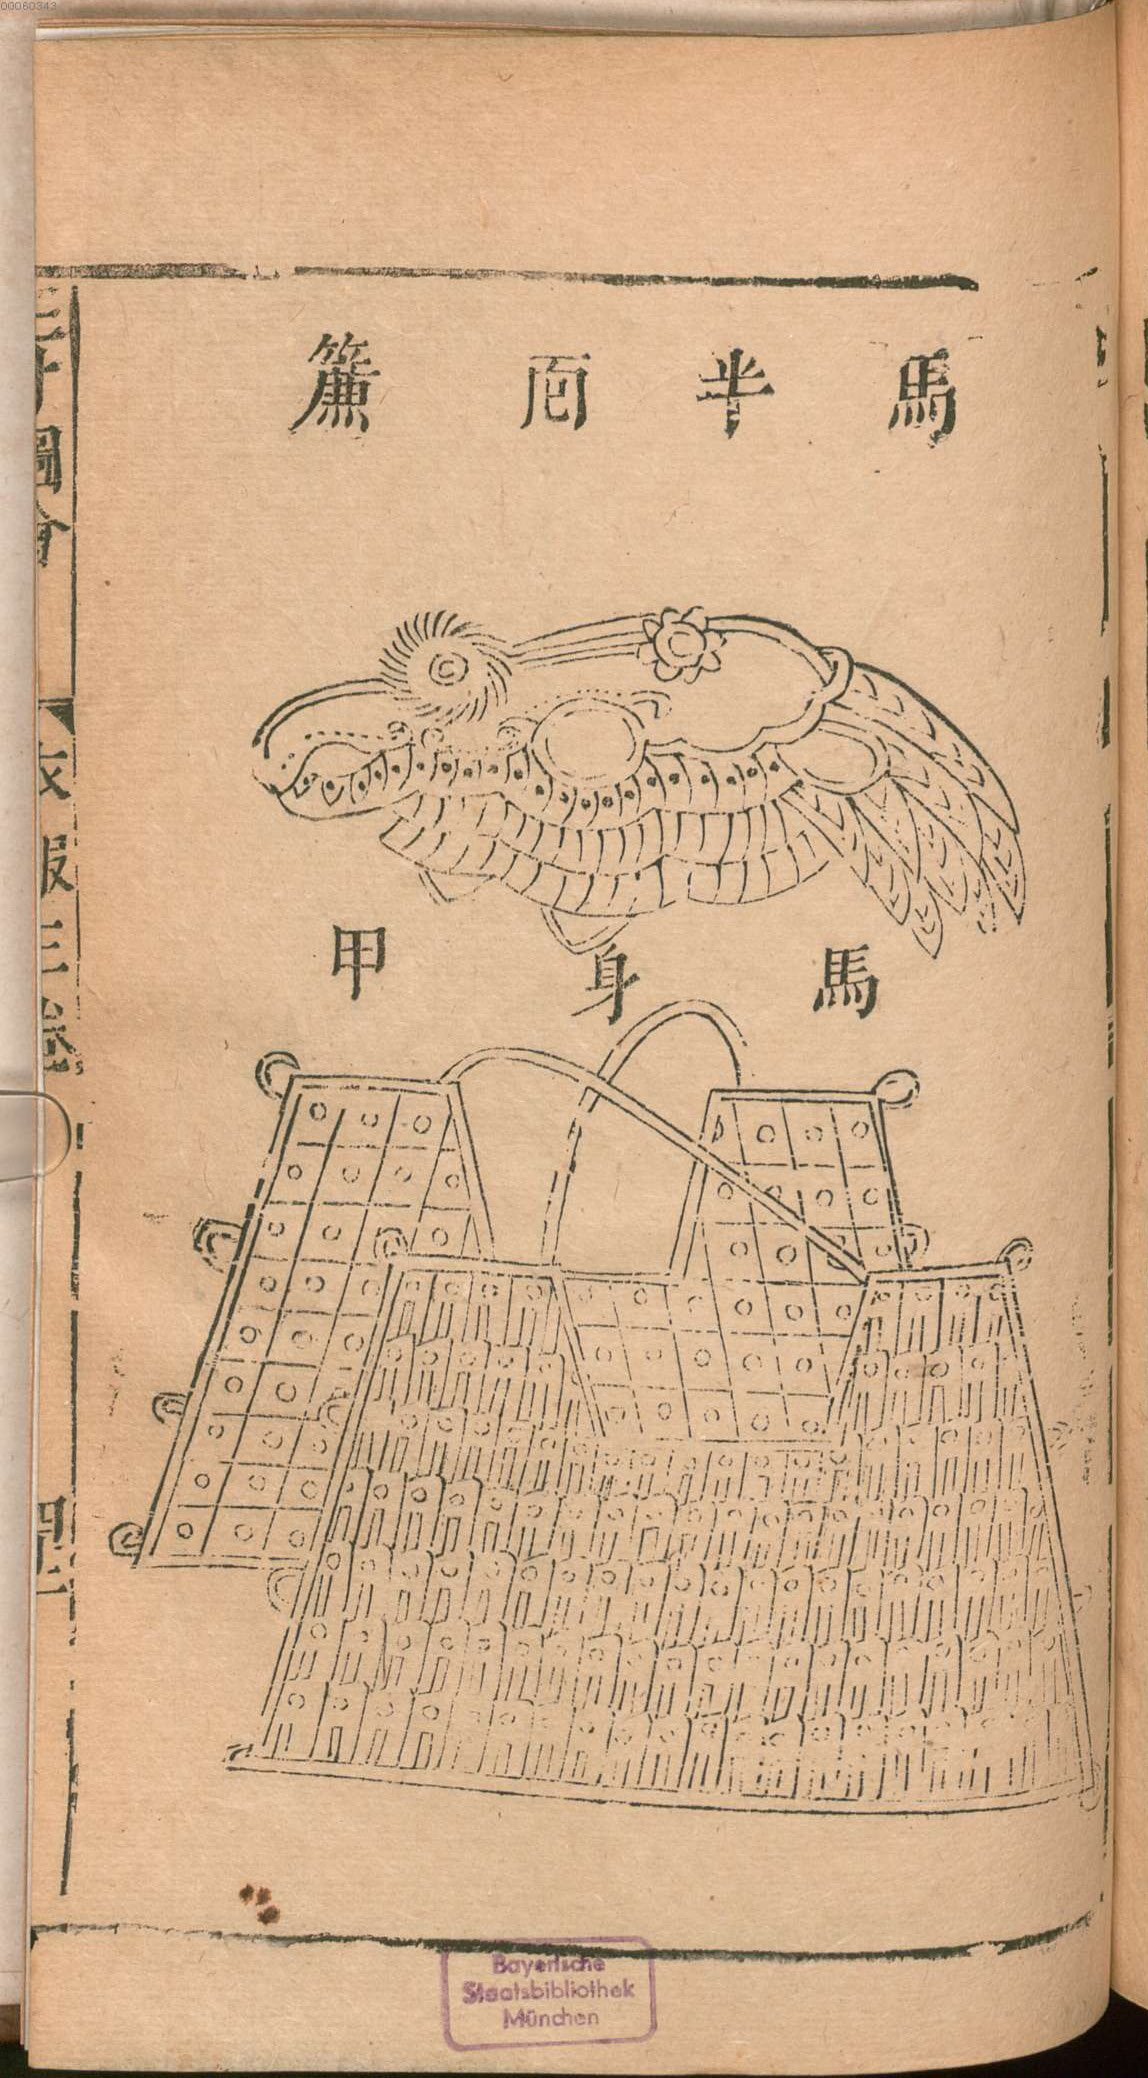 00060343
馬半面簾
馬身甲
三才圖會
衣服三卷
Bayerische
Staatsbibliothek
München